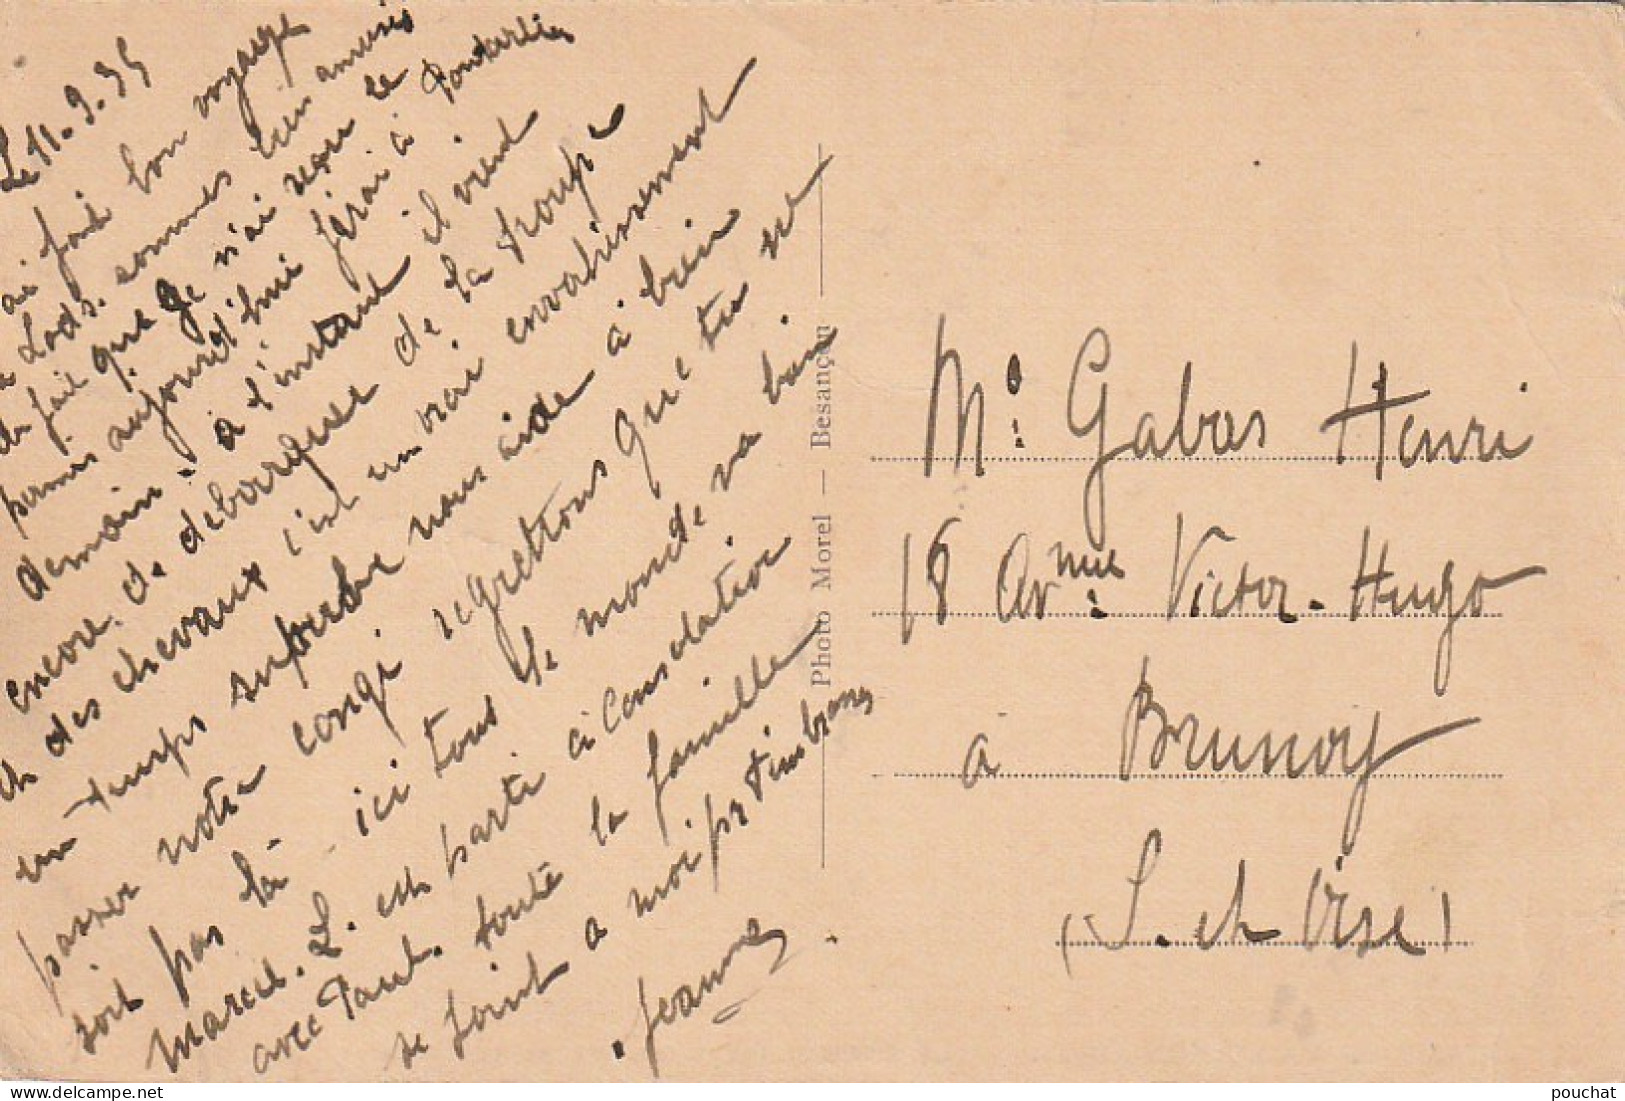 Le 11.9.35
ai fait bon voyage
à Lods. sommes bien amusés
du fait que je n'ai reçu le
permis aujourd'hui ferai à Pontarlier
demain. à l'instant il vient
encore de debarquer de la troupe
et des chevaux c'est un vrai envahissement
un temps superbe nous aide à bien
passer notre congé regrettons que tu ne
soit pas là. ici tout le monde va bien
Marcel. L. est parti à Consolation
avec Paul. toute la famille
se joint a moi pr t'embrasser
Jeanne
Photo Morel — Besançon
Mr. Gabas Henri
18 Avnue Victor-Hugo
a Brunoy
(S. et Oise)
pouchat